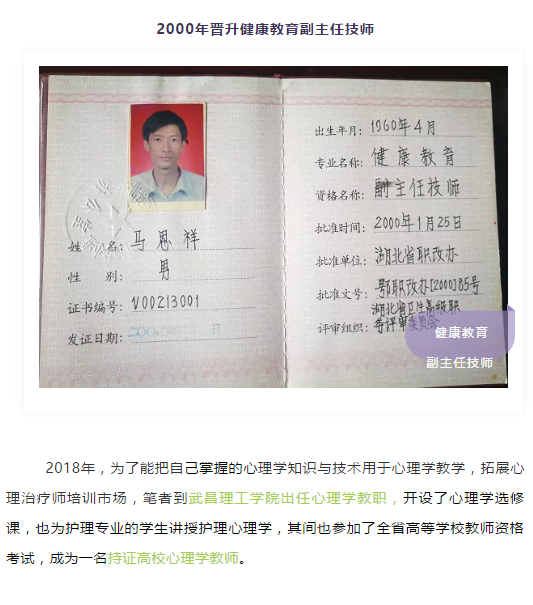 2000年晋升健康教育副主任技师
姓 名：马恩祥
性 别：男
证书编号：V00213001
发证日期：
出生年月：1960年4月
专业名称：健康教育
资格名称：副主任技师
批准时间：2000年1月25日
批准单位：湖北省职改办
批准文号：鄂职改办[2000]85号
湖北省卫生高级职
评审组织：务评审委员会
健康教育
副主任技师
2018年，为了能把自己掌握的心理学知识与技术用于心理学教学，拓展心
理治疗师培训市场，笔者到武昌理工学院出任心理学教职，开设了心理学选修
课，也为护理专业的学生讲授护理心理学，其间也参加了全省高等学校教师资格
考试，成为一名持证高校心理学教师。